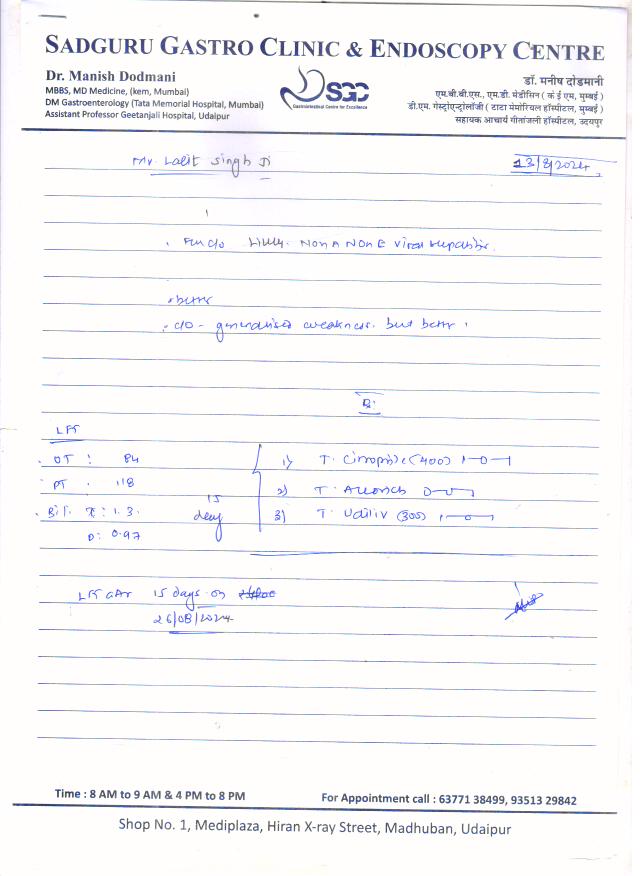 SADGURU GASTRO CLINIC & ENDOSCOPY CENTRE
Dr. Manish Dodmani
MBBS, MD Medicine, (kem, Mumbai)
DM Gastroenterology (Tata Memorial Hospital, Mumbai)
Assistant Professor Geetanjali Hospital, Udaipur
SGC
Gastrointestinal Centre for Excellence
डॉ. मनीष दोडमानी
एम.बी.बी.एस., एम.डी. मेडीसिन ( के ई एम, मुम्बई )
डी.एम. गेस्ट्रोएन्ट्रोलॉजी ( टाटा मेमोरियल हॉस्पीटल, मुम्बई )
सहायक आचार्य गीतांजली हॉस्पीटल, उदयपुर
Mr. Lalit Singh Ji
13/8/2024
Non A Non E Viral hepatitis
better
c/o - generalised weakness. but better
Rx
LFT
OT : 84
PT : 118
Bil. T : 1.3
D : 0.97
15 days
1) T. (400) 1-0-1
2) T.
3) T. Udiliv (300) 1-0-1
LFT after 15 days on
26/08/2024
Time : 8 AM to 9 AM & 4 PM to 8 PM
For Appointment call : 63771 38499, 93513 29842
Shop No. 1, Mediplaza, Hiran X-ray Street, Madhuban, Udaipur